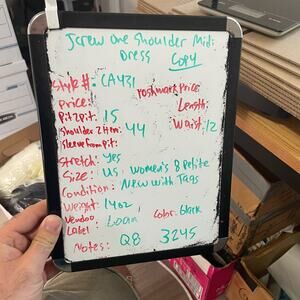 Jcrew One Shoulder Midi
Dress Copy
Style #: CA431
Poshmark Price
Price: Length:
Pit 2 pit: 15 Waist: 12
Shoulder 2 Hem: 44
Sleeve from Pit:
Stretch: Yes
Size: US women's 8 Petite
Condition: New with Tags
Weight: 14oz
Vendoo Loan Color: Black
Label
Notes: Q8 3245